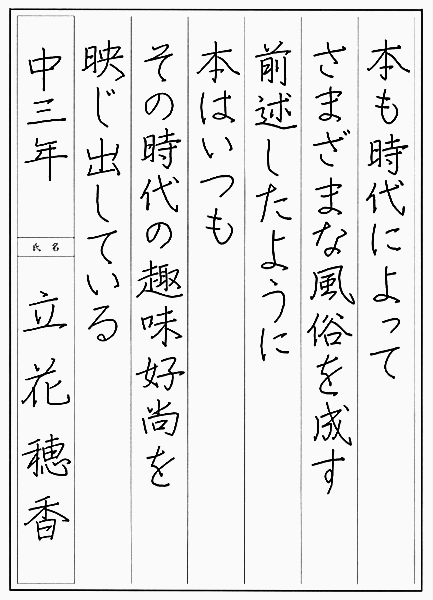 本も時代によって
さまざまな風俗を成す
前述したように
本はいつも
その時代の趣味好尚を
映じ出している
中三年
氏名
立花穂香